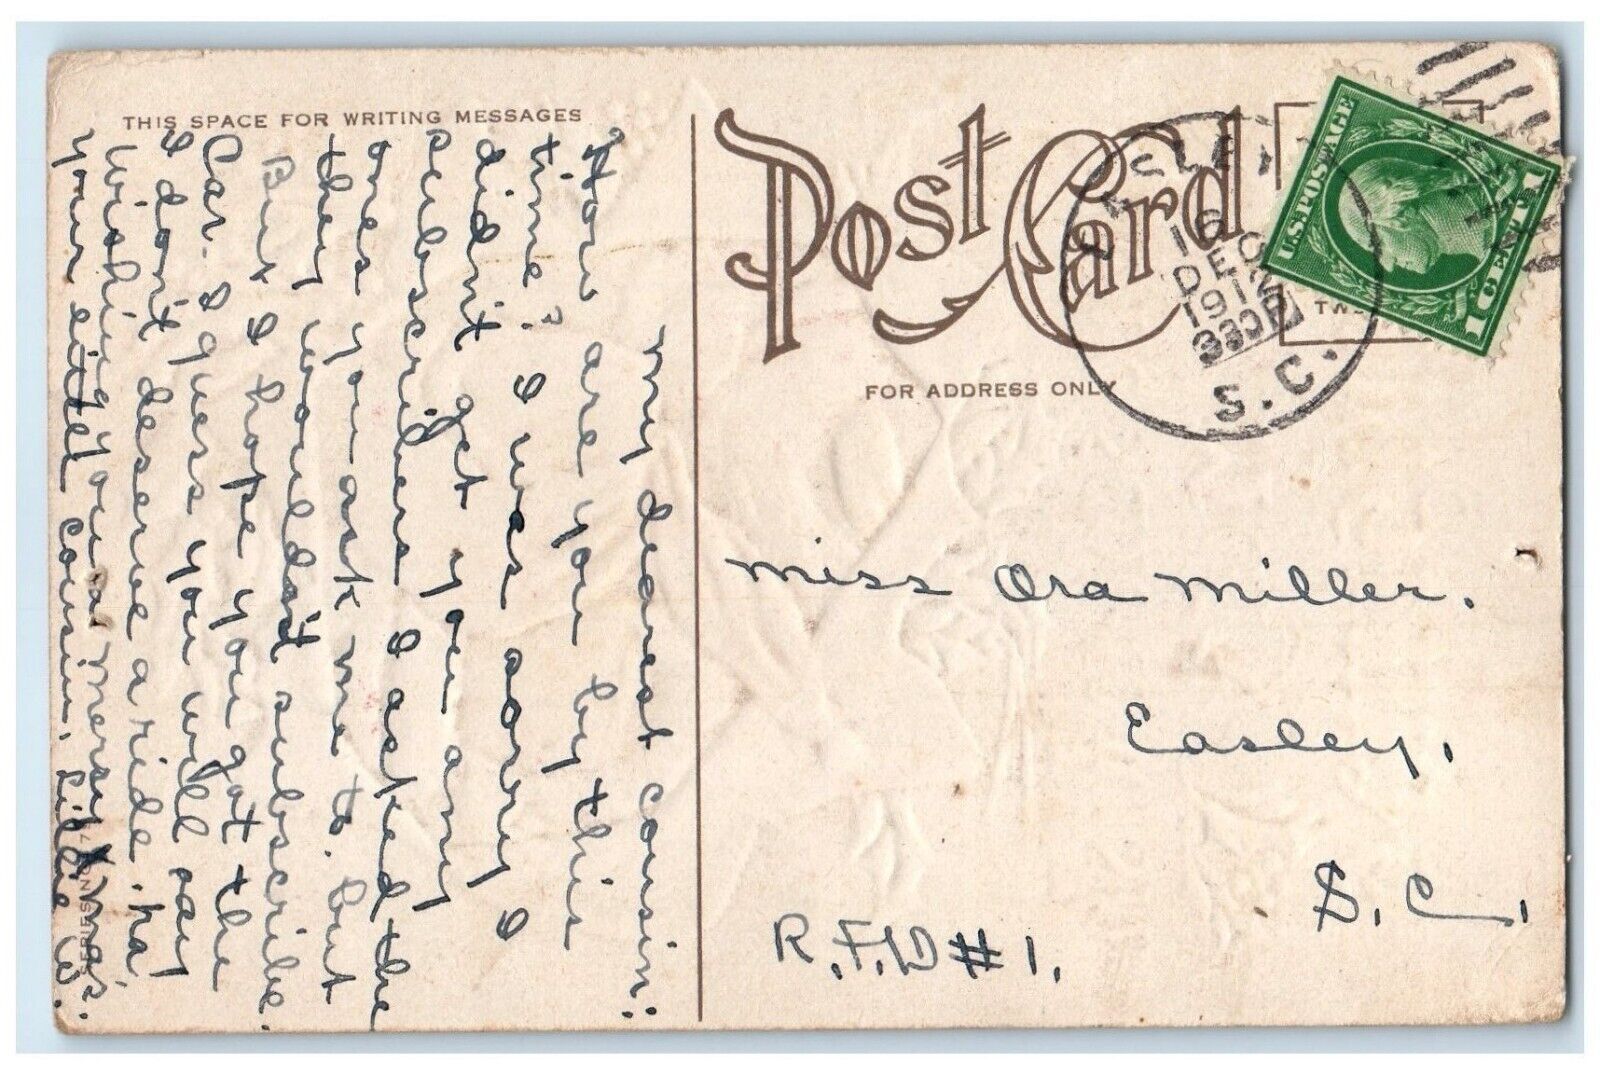 THIS SPACE FOR WRITING MESSAGES
My dearest Cousin:
How are you by this
time? I was sorry I
didn't get you any
subscribers I asked the
ones you ask me to. but
they wouldn't subscribe.
But I hope you got the
Car. I guess you will say
I don't deserve a ride. ha
Wishing you a Merry Xmas.
your little Cousin, Lillie W.
Post Card
FOR ADDRESS ONLY
U.S. POSTAGE
1 CENT 1
DEC
6 PM
S.C.
Miss Ora Miller.
Easley,
S.C.,
R.F.D #1.
SERIES NO